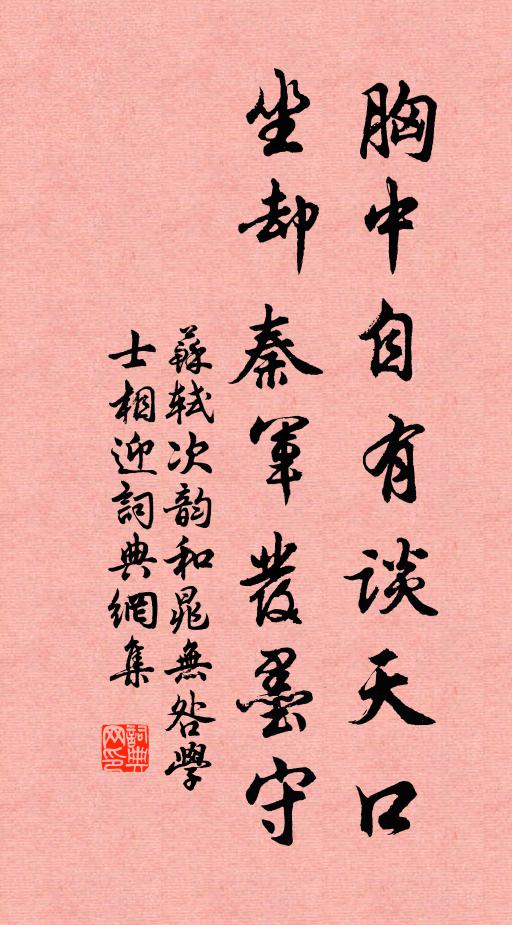 胸中自有談天口
坐却秦軍發墨守
蘇軾次韵和晁無咎學
士相迎詞典網集
詞典
网印